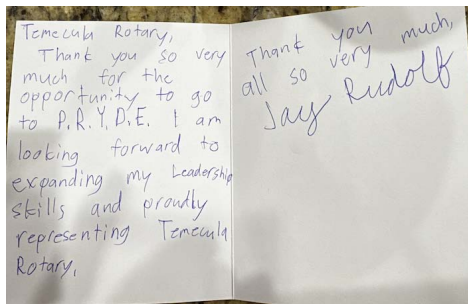 Temecula Rotary,
Thank you so very
much for the
opportunity to go
to P.R.Y.D.E. I am
looking forward to
expanding my Leadership
skills and proudly
representing Temecula
Rotary,
Thank you
all so very much,
Jay Rudolf